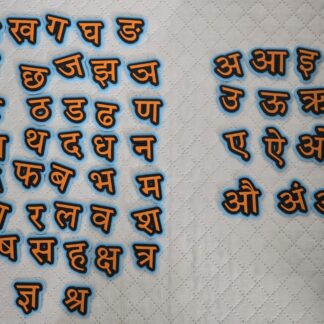 ख ग घ ङ
छ ज झ ञ
ठ ड ढ ण
थ द ध न
फ ब भ म
र ल व श
ष स ह क्ष त्र
ज्ञ श्र
अ आ इ
उ ऊ ऋ
ए ऐ ओ
औ अं